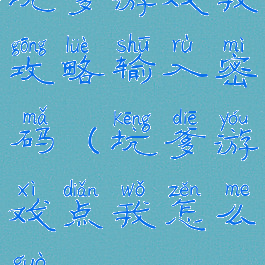 坑爹游戏教
gōng lüè shū rù mì
攻略输入密
mǎ kēng diē yóu
码(坑爹游
xì diǎn wǒ zěn me
戏点我怎么
guò